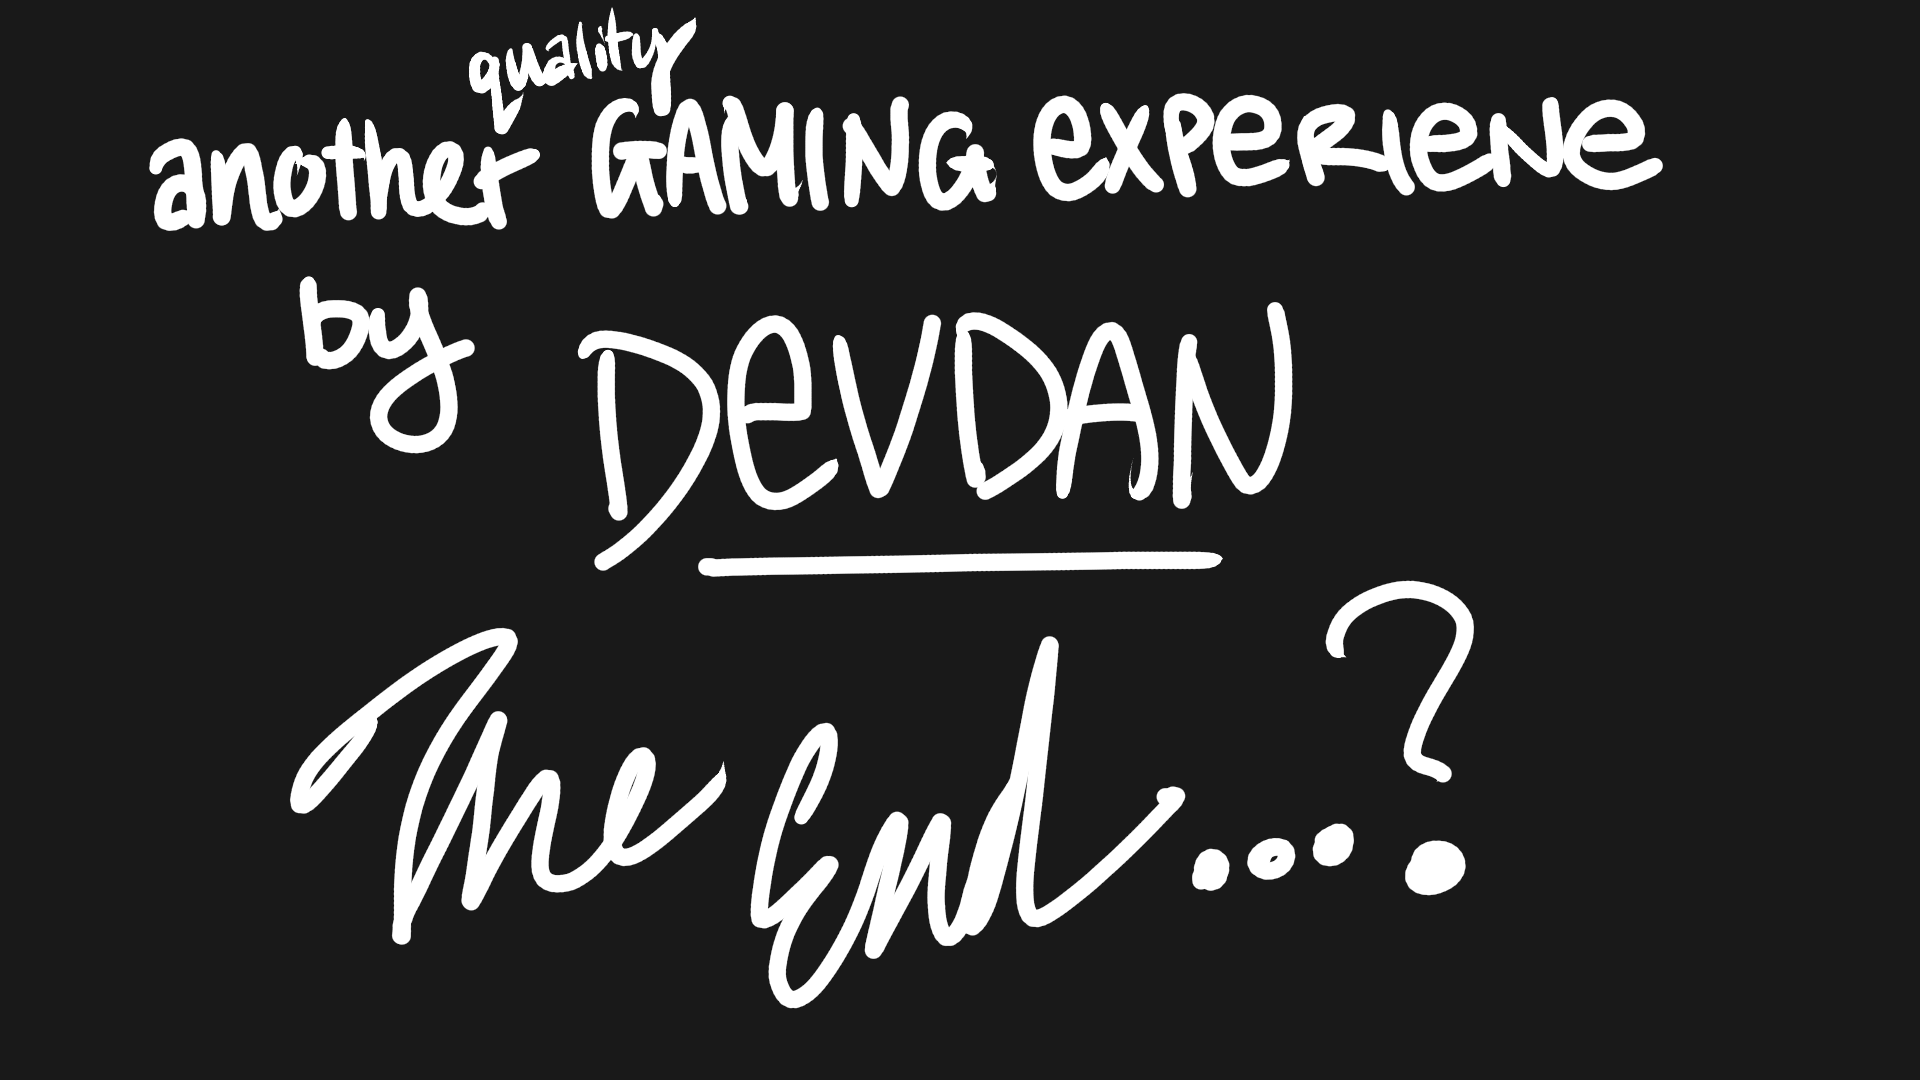 another quality GAMING EXPERIENE
by DEVDAN
The End...?